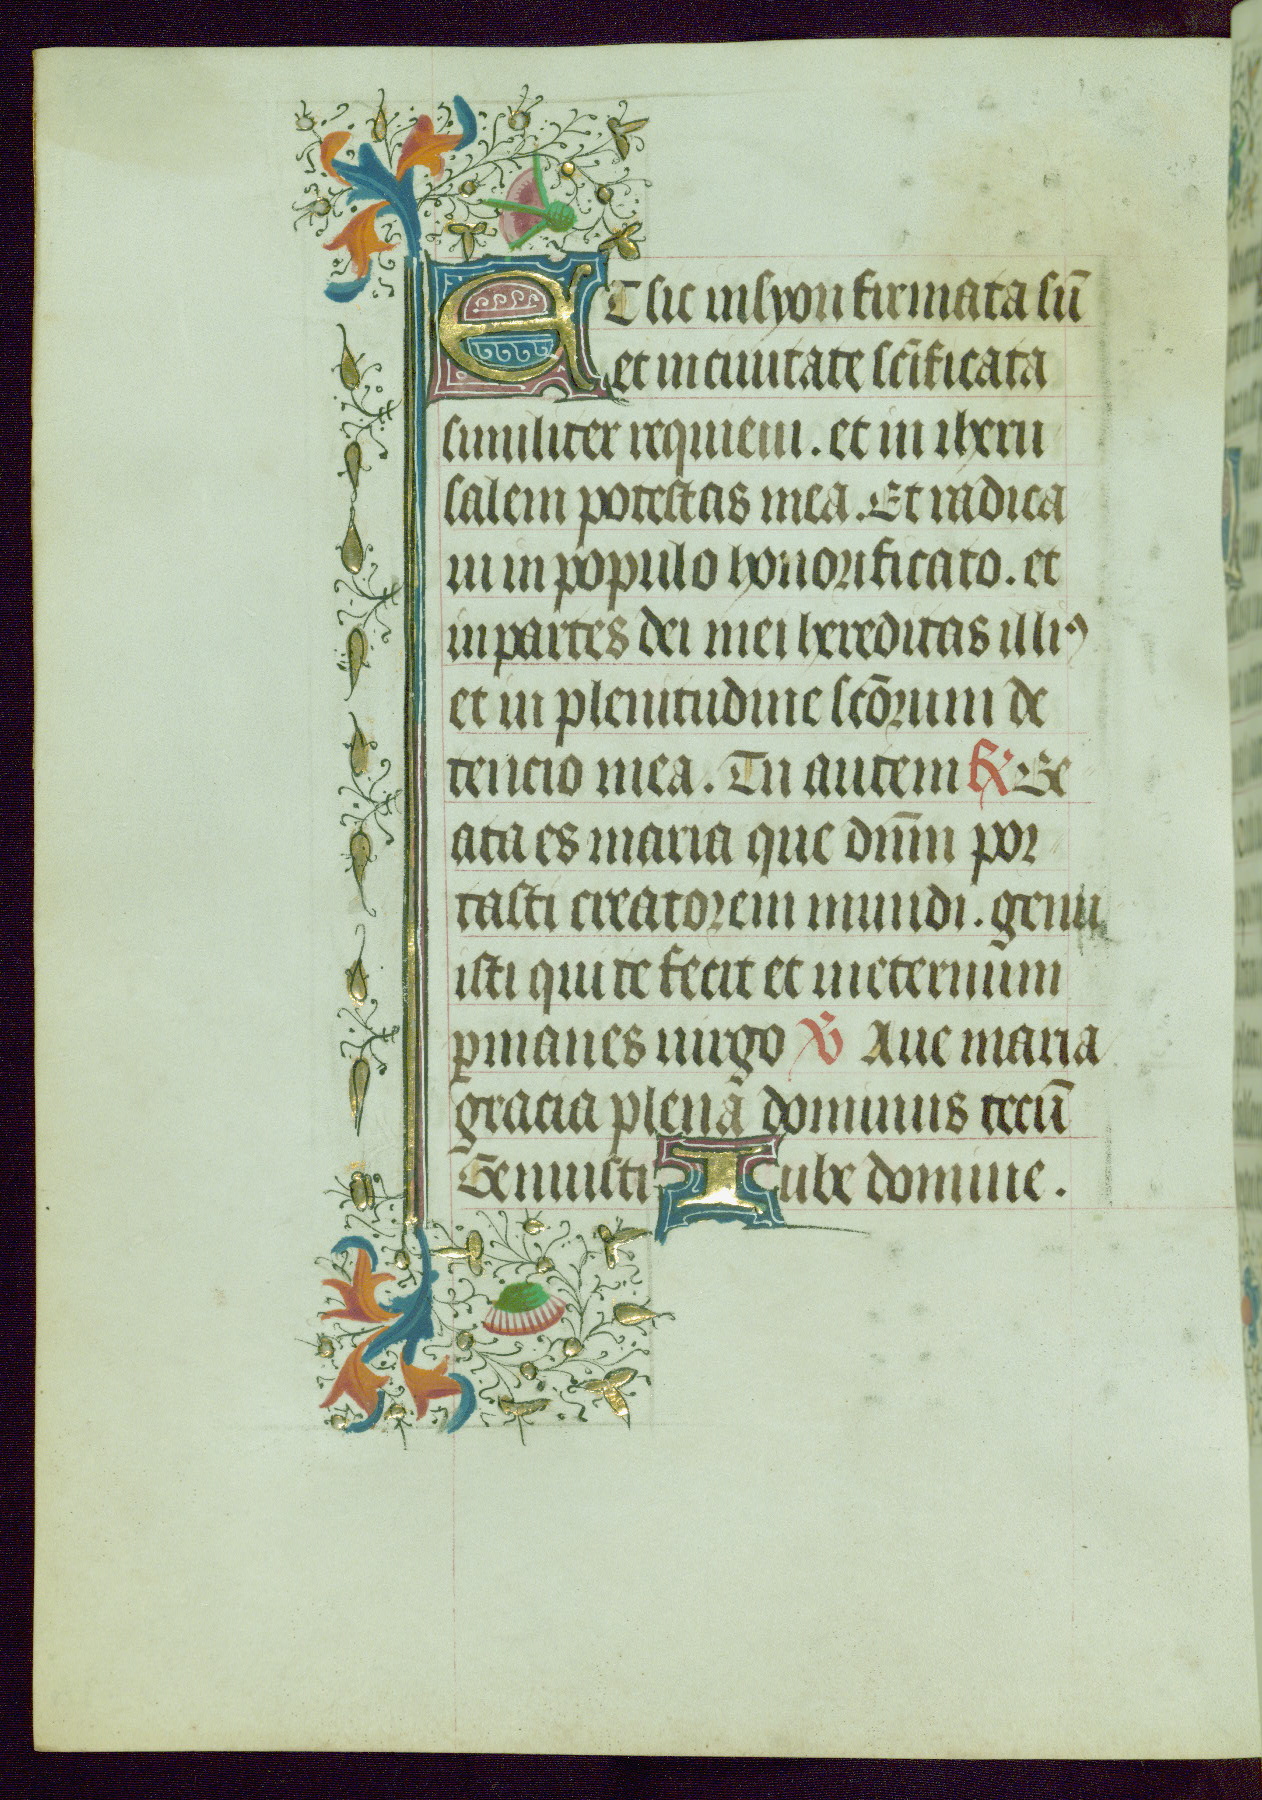 ET sic in syon firmata sū
et in ciuitate sc̄ificata
similiter requieui. et in iheru
salem potestas mea. Et radica
ui in populo honorificato. et
in partes dei mei hereditas illiꝰ
et in plenitudine sc̄orum de
tencio mea. Tu autem ꝶ Be
ata es maria que dn̄m por
tasti creatorem mundi. genu
isti qui te fecit et in eternum
ꝑmanes uirgo ℣ Aue maria
gracia plena dominus tecū
Genuisti Iube domine.